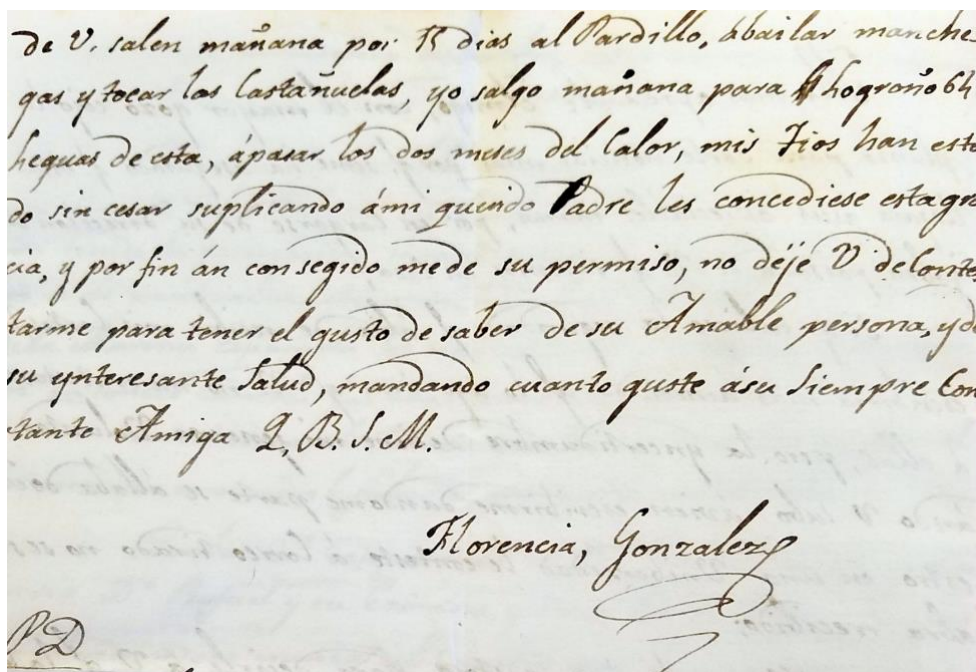 de V. salen mañana por 15 dias al Pardillo, abailar manche
gas y tocar las Castañuelas, yo salgo mañana para Logroño 64
heguas de esta, ápasar los dos meses del Calor, mis Tios han esta
do sin cesar suplicando ámi querido Padre les concediese estagra
cia, y por fin án consegido mede su permiso, no déje V deConte
tarme para tener el gusto de saber de su Amable persona, yde
su ynteresante Salud, mandando cuanto guste ásu Siempre Con
tante Amiga Q. B. S. M.
Florencia, Gonzalez
PD